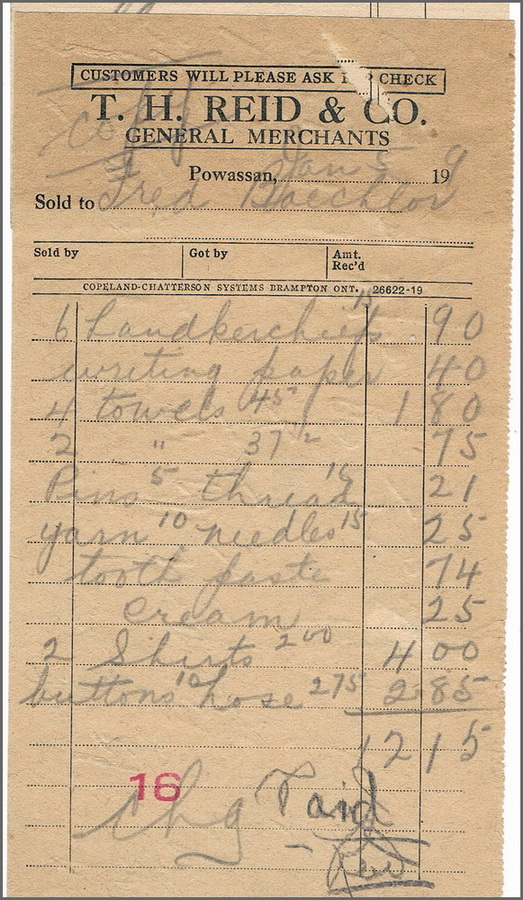 CUSTOMERS WILL PLEASE ASK FOR CHECK
copy
T. H. REID & CO.
GENERAL MERCHANTS
Powassan, Jan 5 199
Sold to Fred Boechlor
Sold by Got by Amt. Rec'd
COPELAND-CHATTERSON SYSTEMS BRAMPTON ONT. 26622-19
6 handkerchiefs 15 90
writing paper 40
4 towels 45 1 80
2 " 37 ½ 75
Pins 5 thread 16 21
yarn 10 needles 15 25
tooth paste 74
cream 25
2 Shirts 2 00 4 00
buttons 10 hose 275 2 85
12 15
16
chg Paid